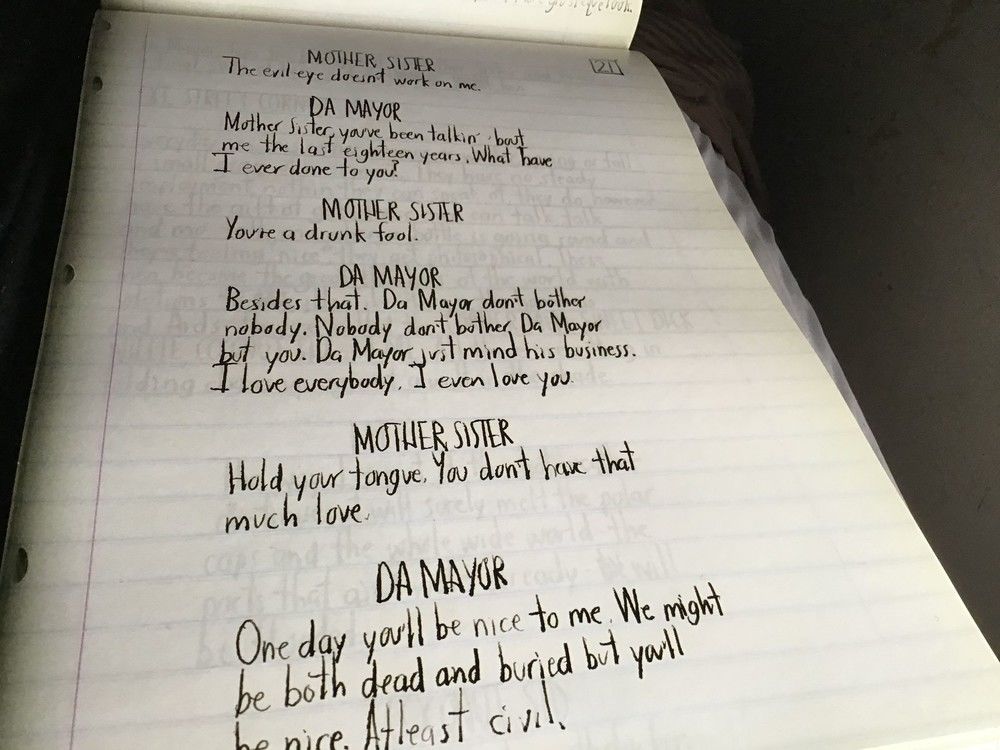 MOTHER SISTER
21
The evil eye doesn't work on me.
DA MAYOR
Mother Sister, you've been talkin' bout
me the last eighteen years. What have
I ever done to you?
MOTHER SISTER
You're a drunk fool.
DA MAYOR
Besides that. Da Mayor don't bother
nobody. Nobody don't bother Da Mayor
but you. Da Mayor just mind his business.
I love everybody. I even love you.
MOTHER SISTER
Hold your tongue. You don't have that
much love.
DA MAYOR
One day you'll be nice to me. We might
be both dead and buried but you'll
be nice. Atleast civil.